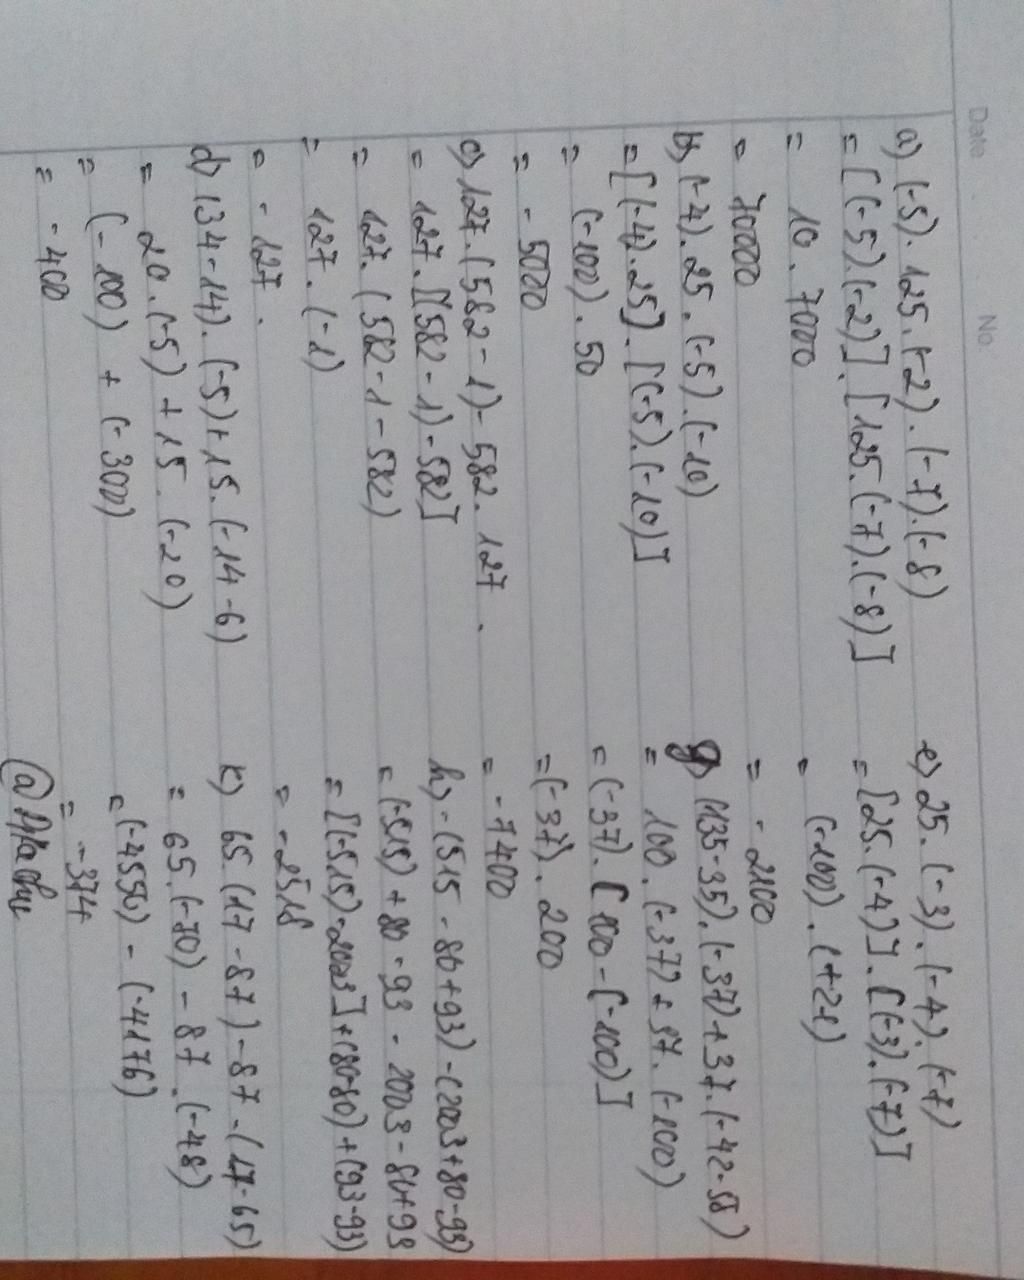 Date
No.
a) (-5). 125. (-2). (-7).(-8)
= [(-5).(-2)]. [125. (-7).(-8)]
= 10. 7000
= 70000
b) (-4). 25. (-5).(-10)
= [(-4).25]. [(-5).(-10)]
= (-100). 50
= - 5000
c) 127. (582 - 1) - 582. 127.
= 127. [(582 - 1) - 582]
= 127. (582 - 1 - 582)
= 127. (-1)
= - 127.
d) (34-14). (-5)+15. (-14-6)
= 20. (-5) + 15. (-20)
= (-100) + (-300)
= - 400
e) 25. (-3). (-4). (-7)
= [25. (-4)]. [(-3). (-7)]
= (-100). (+21)
= - 2100
g) (135-35). (-37)+37. (-42-58)
= 100. (-37) + 37. (-100)
= (-37). [100 - (-100)]
= (-37). 200
= - 7400
h) - (515 - 80+93) - (2003+80-93)
= (-515) + 80 - 93 - 2003 - 80+93
= [(-515)-2003]+(80-80)+(93-93)
= - 2518
k) 65. (17 - 87) - 87. (17-65)
= 65. (-70) - 87. (-48)
= (-4550) - (-4176)
= -374